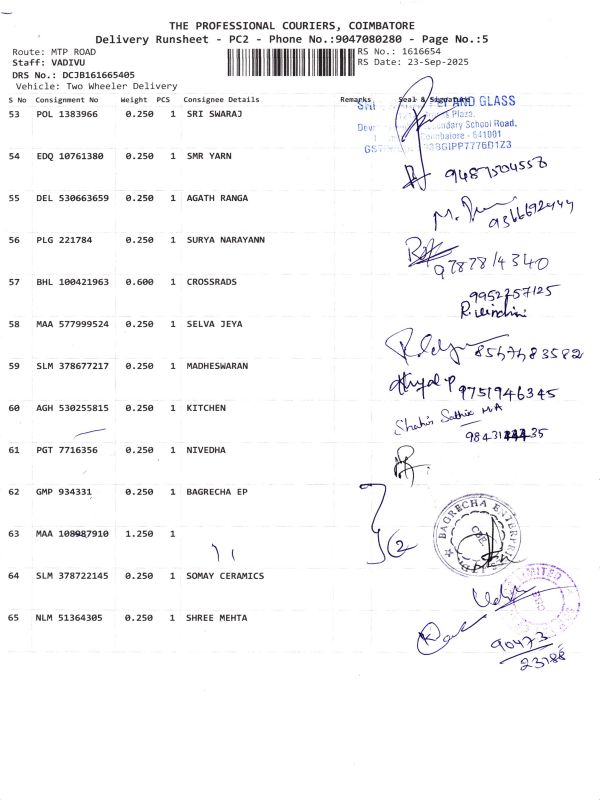 THE PROFESSIONAL COURIERS, COIMBATORE
Delivery Runsheet - PC2 - Phone No.:9047080280 - Page No.:5
Route: MTP ROAD
RS No.: 1616654
Staff: VADIVU
RS Date: 23-Sep-2025
DRS No.: DCJB161665405
Vehicle: Two Wheeler Delivery
S No Consignment No Weight PCS Consignee Details Remarks Seal & Signature
53 POL 1383966 0.250 1 SRI SWARAJ
SRI AND GLASS
Plaza,
Secondary School Road,
Coimbatore - 641001
54 EDQ 10761380 0.250 1 SMR YARN
9487504558
55 DEL 530663659 0.250 1 AGATH RANGA
9366692444
56 PLG 221784 0.250 1 SURYA NARAYANN
9787814340
57 BHL 100421963 0.600 1 CROSSRADS
9952757125
58 MAA 577999524 0.250 1 SELVA JEYA
8547483582
59 SLM 378677217 0.250 1 MADHESWARAN
9751946345
60 AGH 530255815 0.250 1 KITCHEN
61 PGT 7716356 0.250 1 NIVEDHA
62 GMP 934331 0.250 1 BAGRECHA EP
2
BAGRECHA ENTERPRI
CBE
63 MAA 108987910 1.250 1
64 SLM 378722145 0.250 1 SOMAY CERAMICS
LIMITED
65 NLM 51364305 0.250 1 SHREE MEHTA
90473
23188